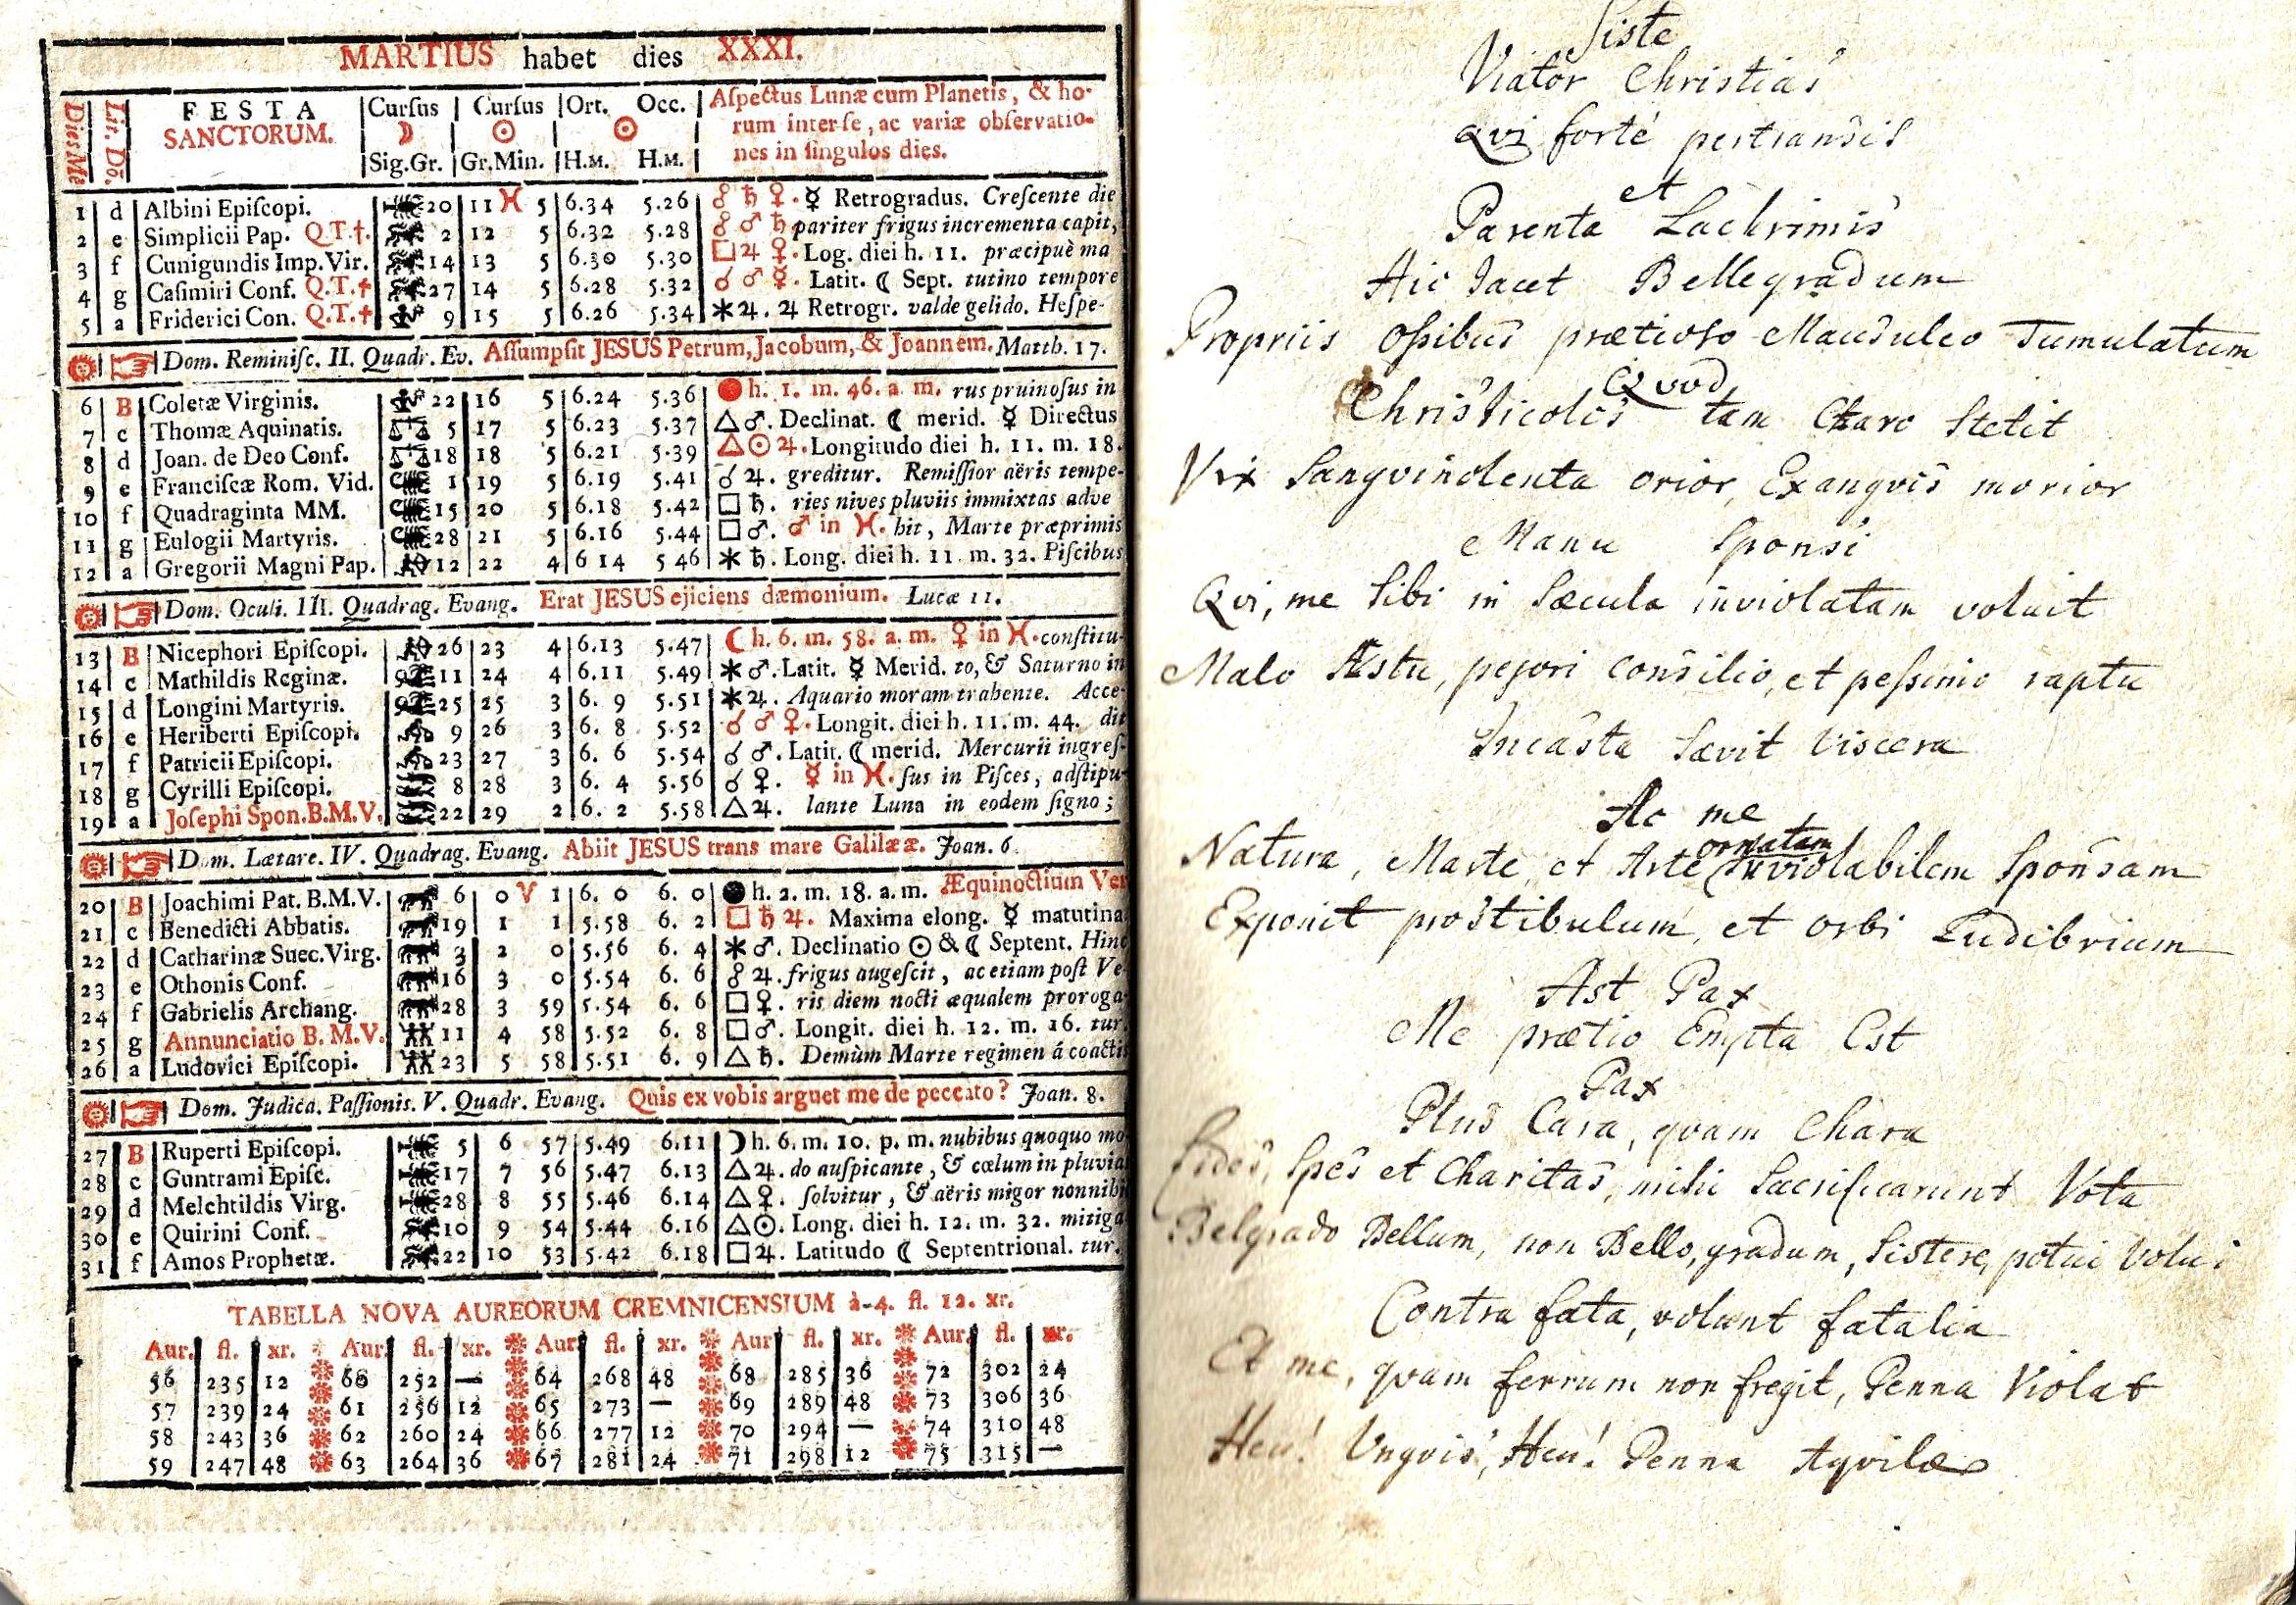 MARTIUS habet dies XXXI.
Dies Mẽ. Lit. Dō. FESTA SANCTORUM. Cursus ☽ Sig.Gr. Cursus ☉ Gr.Min. Ort. Occ. ☉ H.M. H.M.
Aſpectus Lunæ cum Planetis, & ho-
rum inter ſe, ac variæ obſervatio-
nes in ſingulos dies.
1 d Albini Epiſcopi. 20 11 ♓ 5 6.34 5.26 ☍ ♄ ♀. ☿ Retrogradus. Creſcente die
2 e Simplicii Pap. Q.T.†. 2 12 5 6.32 5.28 ☍ ♂ ♄ pariter frigus incrementa capit,
3 f Cunigundis Imp. Vir. 14 13 5 6.30 5.30 □ ♃ ♀. Log. diei h. 11. præcipuè ma
4 g Caſimiri Conf. Q.T.† 27 14 5 6.28 5.32 ☌ ♂ ☿. Latit. ☾ Sept. tutino tempore
5 a Friderici Con. Q.T.† 9 15 5 6.26 5.34 ✱ ♃. ♃ Retrogr. valde gelido. Heſpe-
Dom. Reminiſc. II. Quadr. Ev. Aſſumpſit JESUS Petrum, Jacobum, & Joannem. Matth. 17.
6 B Coletæ Virginis. 22 16 5 6.24 5.36 h. 1. m. 46. a. m. rus pruinoſus in
7 c Thomæ Aquinatis. 5 17 5 6.23 5.37 △ ♂. Declinat. ☾ merid. ☿ Directus
8 d Joan. de Deo Conf. 18 18 5 6.21 5.39 △ ☉ ♃. Longitudo diei h. 11. m. 18.
9 e Franciſcæ Rom. Vid. 1 19 5 6.19 5.41 ☌ ♃. greditur. Remiſſior aëris tempe-
10 f Quadraginta MM. 15 20 5 6.18 5.42 □ ♄. ries nives pluviis immixtas adve
11 g Eulogii Martyris. 28 21 5 6.16 5.44 □ ♂. ♂ in ♓. hit, Marte præprimis
12 a Gregorii Magni Pap. 12 22 4 6 14 5 46 ✱ ♄. Long. diei h. 11. m. 32. Piſcibus
Dom. Oculi. III. Quadrag. Evang. Erat JESUS ejiciens dæmonium. Lucæ 11.
13 B Nicephori Epiſcopi. 26 23 4 6.13 5.47 ☾ h. 6. m. 58. a. m. ♀ in ♓. conſtitu-
14 c Mathildis Reginæ. 11 24 4 6.11 5.49 ✱ ♂. Latit. ☿ Merid. to, & Saturno in
15 d Longini Martyris. 25 25 3 6. 9 5.51 ✱ ♃. Aquario moram trahente. Acce-
16 e Heriberti Epiſcopi. 9 26 3 6. 8 5.52 ☌ ♂ ♀. Longit. diei h. 11. m. 44. dit
17 f Patricii Epiſcopi. 23 27 3 6. 6 5.54 ☌ ♂. Latit. ☾ merid. Mercurii ingreſ-
18 g Cyrilli Epiſcopi. 8 28 3 6. 4 5.56 ☌ ♀. ☿ in ♓. ſus in Piſces, adſtipu-
19 a Joſephi Spon. B.M.V. 22 29 2 6. 2 5.58 △ ♃. lante Luna in eodem ſigno;
Dom. Lætare. IV. Quadrag. Evang. Abiit JESUS trans mare Galilææ. Joan. 6.
20 B Joachimi Pat. B.M.V. 6 0 ♈ 1 6. 0 6. 0 h. 2. m. 18. a. m. Æquinoctium Ver
21 c Benedicti Abbatis. 19 1 1 5.58 6. 2 □ ♄ ♃. Maxima elong. ☿ matutina.
22 d Catharinæ Suec. Virg. 3 2 0 5.56 6. 4 ✱ ♂. Declinatio ☉ & ☾ Septent. Hinc
23 e Othonis Conf. 16 3 0 5.54 6. 6 ☍ ♃. frigus augeſcit, ac etiam poſt Ve-
24 f Gabrielis Archang. 28 3 59 5.54 6. 6 □ ♀. ris diem nocti æqualem proroga-
25 g Annunciatio B. M.V. 11 4 58 5.52 6. 8 □ ♂. Longit. diei h. 12. m. 16. tur.
26 a Ludovici Epiſcopi. 23 5 58 5.51 6. 9 △ ♄. Demùm Marte regimen á coactis
Dom. Judica. Paſſionis. V. Quadr. Evang. Quis ex vobis arguet me de peccato? Joan. 8.
27 B Ruperti Epiſcopi. 5 6 57 5.49 6.11 ☽ h. 6. m. 10. p. m. nubibus quoquo mo
28 c Guntrami Epiſc. 17 7 56 5.47 6.13 △ ♃. do auſpicante, & cœlum in pluvia
29 d Melchtildis Virg. 28 8 55 5.46 6.14 △ ♀. ſolvitur, & aëris migor nonnihi
30 e Quirini Conf. 10 9 54 5.44 6.16 △ ☉. Long. diei h. 12. m. 32. mitiga
31 f Amos Prophetæ. 22 10 53 5.42 6.18 □ ♃. Latitudo ☾ Septentrional. tur.
TABELLA NOVA AUREORUM CREMNICENSIUM à-4. fl. 12. xr.
Aur. fl. xr. Aur. fl. xr. Aur. fl. xr. Aur fl. xr. Aur. fl. xr.
56 235 12 60 252 — 64 268 48 68 285 36 72 302 24
57 239 24 61 256 12 65 273 — 69 289 48 73 306 36
58 243 36 62 260 24 66 277 12 70 294 — 74 310 48
59 247 48 63 264 36 67 281 24 71 298 12 75 315 —
Siste
Viator Christias
qvi forté pertransis
et
Parenta Lachrimis
Hic Jacet Bellegradum
Propriis ossibus prætioso Mausuleo Tumulatum
Qvod
Christicolis tam Charo Stetit
Vix Sangvinolenta orior, Exangvis morior
Manu Sponsi
Qvi, me Sibi in Sæcula inviolatam voluit
Malo Æstu, pejori consilio, et pessimo raptu
Incasta Sævit viscera
Ac me
Natura, Marte, et Arte ornatam inviolabilem Sponsam
Exponit prostibulum, et orbi Ludibrium
Ast Pax
Me prætio Empta Est
Pax
Plus Cara, qvam Chara
fides, Spes et Charitas, mihi Sacrificarunt Vota
Belgrado Bellum, non Bello, gradum, Sistere, potui Volui
Contra fata, volunt fatalia
Et me, qvam ferrum non fregit, Penna Violat
Heu! Vngvis, Heu! Penna Aqvilæ